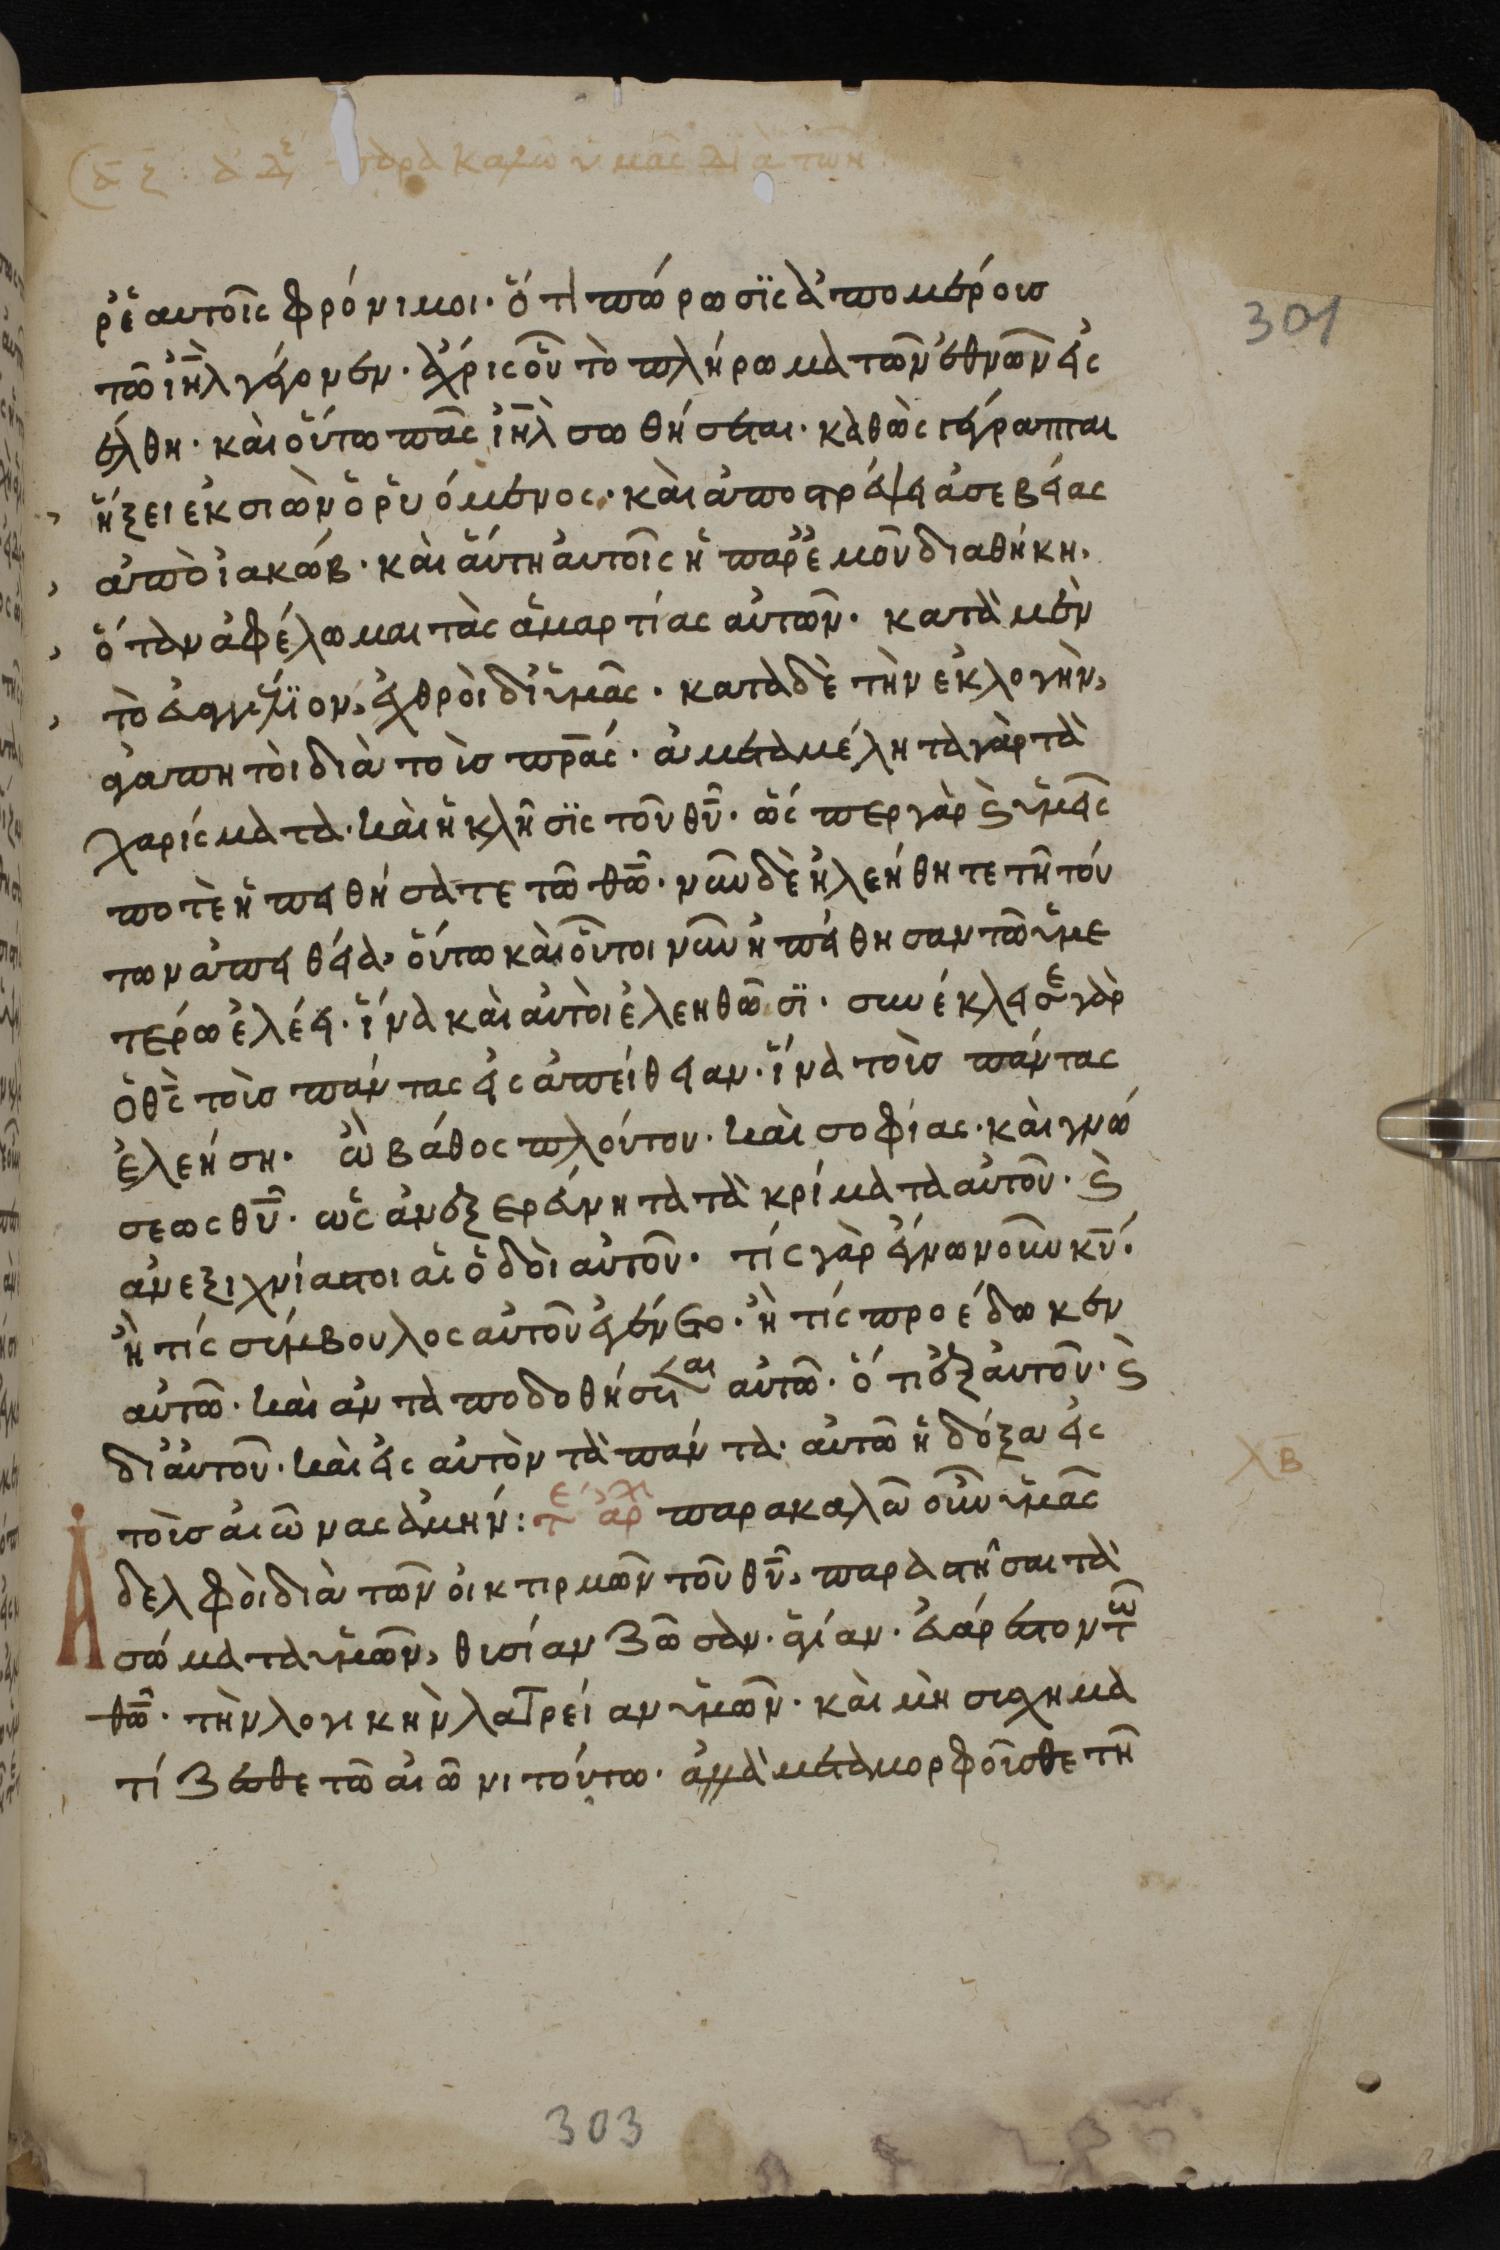 παρακαλῶ ὑμᾶς διὰ τῶν
301
ρ' ἑαυτοῖς φρόνιμοι· ὅτι πώρωσϊς ἀπομέρους
τῶ ἰη̅λ γέγονεν· ἄχρις οὗ τὸ πλήρωμα τῶν ἐθνῶν εἰς
έλθη· καὶ οὕτω πᾶς ἰη̅λ σωθήσεται· καθὼς γέγραπται
ἥξει ἐκ σιὼν ὁ ῥυόμενος· καὶ ἀποστρέψει ἀσεβείας
ἀπὸ ἰακώβ· καὶ αὕτη αὐτοῖς ἡ παρ' ἐμοῦ διαθήκη·
ὅταν ἀφέλωμαι τὰς ἁμαρτίας αὐτῶν· κατὰ μὲν
τὸ εὐαγγέλϊον, ἐχθροὶ δι' ὑμᾶς· κατὰ δὲ τὴν ἐκλογὴν,
ἀγαπητοὶ διὰ τοὺς πρ̅ας· ἀμεταμέλητα γὰρ τὰ
χαρίσματα· καὶ ἡ κλῆσϊς τοῦ θυ̅· ὥσπερ γὰρ ϗ ὑμεῖς
ποτὲ ἠπειθήσατε τῶ θω̅· νῦν δὲ ἠλεήθητε τῆ τού
των ἀπειθεία· οὕτω καὶ οὗτοι νῦν ἠπείθησαν τῶ ὑμε
τέρω ἐλέει· ἵνα καὶ αὐτοὶ ἐλεηθῶσϊ· συνέκλεισε γὰρ
ὁ θς̅ τοὺς πάντας εἰς ἀπείθειαν· ἵνα τοὺς πάντας
ἐλεήση· ὢ βάθος πλούτου· καὶ σοφίας· καὶ γνώ
σεως θυ̅· ὡς ἀνεξερεύνητα τὰ κρίματα αὐτοῦ· ϗ
ἀνεξιχνίαστοι αἱ ὁδοὶ αὐτοῦ· τίς γὰρ ἔγνω νοῦν κυ̅·
ἢ τίς σύμβουλος αὐτοῦ ἐγένετο· ἢ τίς προέδωκεν
αὐτῶ· καὶ ἀνταποδοθήσεται αὐτῶ· ὅτι ἐξ αὐτοῦ· ϗ
δι' αὐτοῦ· καὶ εἰς αὐτὸν τὰ πάντα· αὐτῶ ἡ δόξα εἰς
τοὺς αἰῶνας ἀμήν: τε ἀρχ παρακαλῶ οὖν ὑμᾶς
Ἀ
δελφοὶ διὰ τῶν οἰκτιρμῶν τοῦ θυ̅, παραστῆσαι τὰ
σώματα ὑμῶν, θυσίαν ζῶσαν· ἁγίαν· εὐάρεστον τῶ
θω̅· τὴν λογικὴν λατρείαν ὑμῶν· καὶ μὴ συσχημα
τίζεσθε τῶ αἰῶνι τούτω· ἀλλὰ μεταμορφοῦσθε τῆ
λβ
303